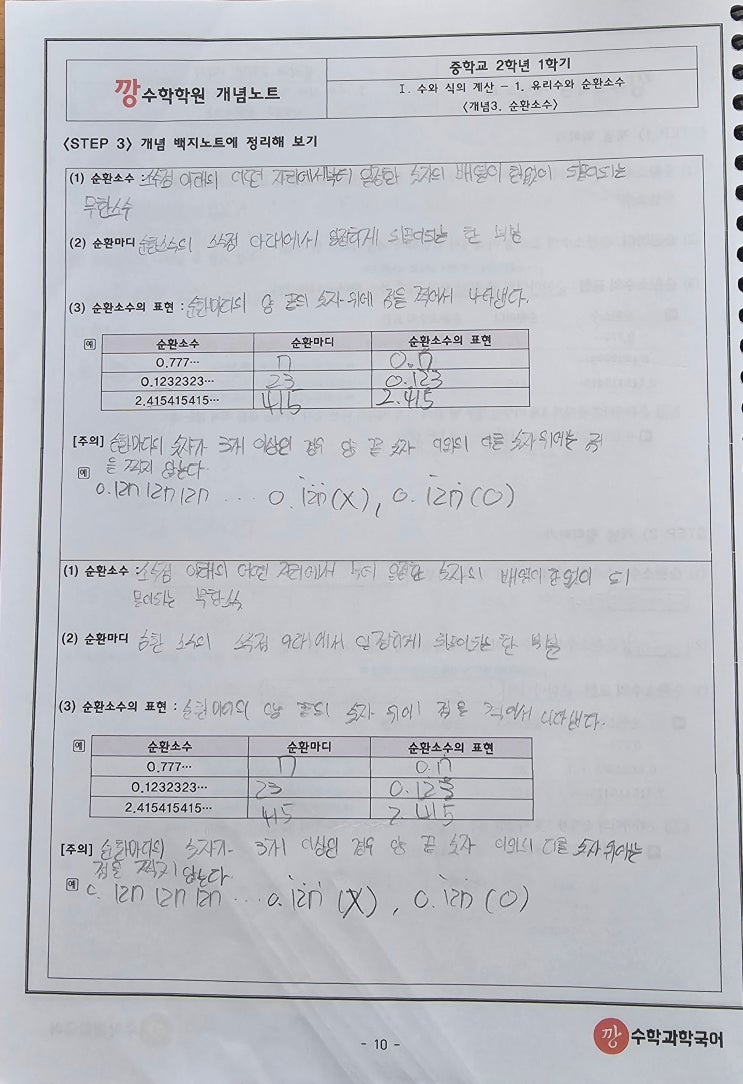 깡수학학원 개념노트
중학교 2학년 1학기
Ⅰ. 수와 식의 계산 - 1. 유리수와 순환소수
<개념3. 순환소수>
<STEP 3> 개념 백지노트에 정리해 보기
(1) 순환소수 : 소수점 아래의 어떤 자리에서부터 일정한 숫자의 배열이 한없이 되풀이되는
무한소수
(2) 순환마디 순환소수의 소수점 아래에서 일정하게 되풀이되는 한 부분
(3) 순환소수의 표현 : 순환마디의 양 끝의 숫자 위에 점을 찍어서 나타낸다.
예 순환소수 순환마디 순환소수의 표현
0.777··· 7 0.7̇
0.1232323··· 23 0.12̇3̇
2.415415415··· 415 2.4̇15̇
[주의] 순환마디의 숫자가 3개 이상인 경우 양 끝 숫자 이외의 다른 숫자 위에는 점
을 찍지 않는다.
예
0.127127127 ··· 0.1̇2̇7̇(X), 0.1̇27̇(O)
(1) 순환소수 : 소수점 아래의 어떤 자리에서 부터 일정한 숫자의 배열이 한없이 되
풀이되는 무한소수
(2) 순환마디 순환 소수의 소수점 아래에서 일정하게 되풀이되는 한 부분
(3) 순환소수의 표현 : 순환마디의 양 끝의 숫자 위에 점을 찍어서 나타낸다.
예 순환소수 순환마디 순환소수의 표현
0.777··· 7 0.7̇
0.1232323··· 23 0.12̇3̇
2.415415415··· 415 2.4̇15̇
[주의] 순환마디의 숫자가 3개 이상인 경우 양 끝 숫자 이외의 다른 숫자 위에는
점을 찍지 않는다.
예 0.127 127 127 ··· 0.1̇2̇7̇(X), 0.1̇27̇(O)
- 10 -
깡 수학과학국어